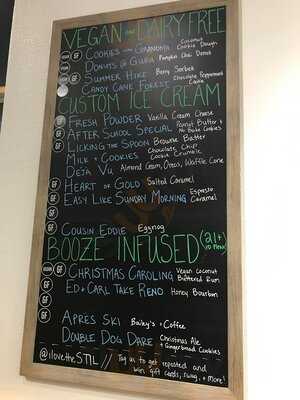 VEGAN AND DAIRY FREE
VEGAN GF COOKIES FOR GRANDMA Coconut Cookie Dough
VEGAN DONUTS @ Pumpkin Chai Donut
VEGAN GF SUMMER HIKE Berry Sorbet
CANDY CANE FOREST Chocolate Peppermint
CUSTOM ICE CREAM
GF FRESH POWDER Vanilla Cream Cheese
GF AFTER SCHOOL SPECIAL Peanut Butter + No Bake Cookies
GF LICKING THE SPOON Brownie Batter
MILK + COOKIES Chocolate Chip Cookie Crumble
DEJA VU Almond Cream, Oreos, Waffle Cone
GF HEART OF GOLD Salted Caramel
GF EASY LIKE SUNDAY MORNING Espresso Caramel
COUSIN EDDIE Eggnog
BOOZE INFUSED (21+ ID Please)
VEGAN GF CHRISTMAS CAROLING Vegan Coconut Buttered Rum
GF ED + CARL TAKE RENO Honey Bourbon
GF APRÈS SKI Bailey's + Coffee
DOUBLE DOG DARE Christmas Ale + Gingerbread Cookies
@ilovetheSTIL // Tag us to get reposted and
win gift cards, swag, + more!